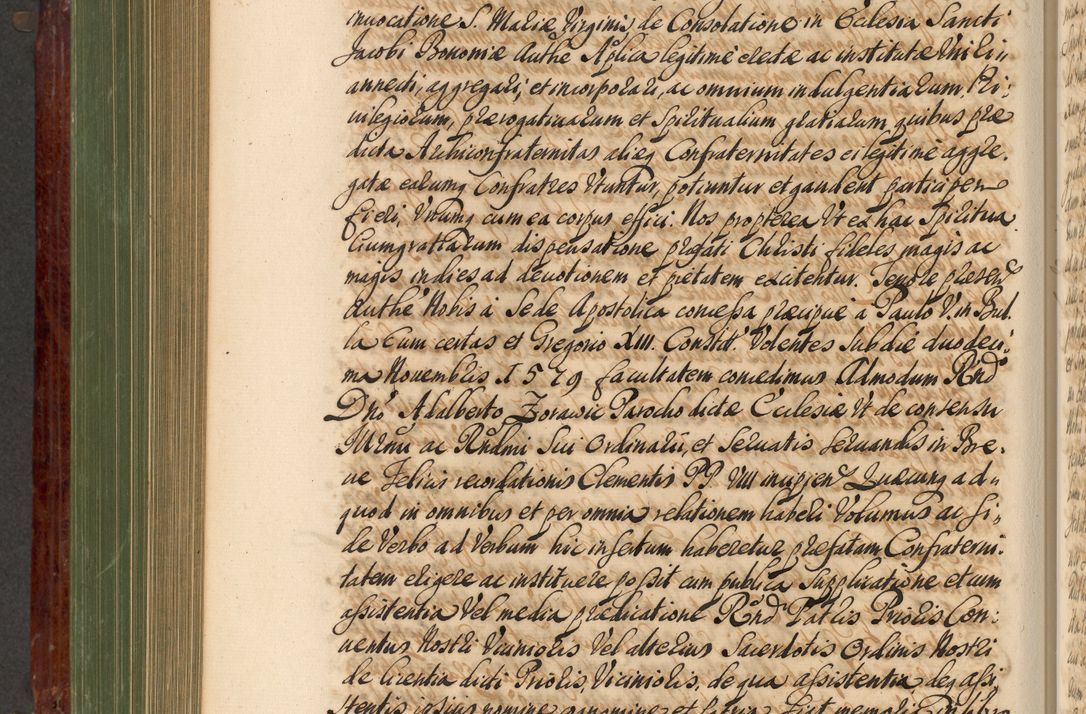 invocatione S. Mariæ Virginis de Consolatione in Ecclesia Sancti
Jacobi Bononiæ Authe Aplica legitimè erectæ ac institutæ Uniri
annecti, aggregari, et incorporari, ac omnium indulgentiarum, Pri:
uilegiorum, prærogatiuarum et Spiritualium gratiarum, quibus præ
dicta Archiconfraternitas alieq Confraternitates ei legitimè aggre,
gatæ earumq Confratres Utuntur, potiuntur et gaudent participem
fieri, Unumq cum ea corpus effici. Nos propterea Ut ex hac Spiritua
lium gratiarum dispensatione prefati Christi fideles magis ac
magis indies ad deuotionem et pietatem excitentur. Tenore presen
Authe Nobis à Sede Apostolica concessa præcipuè à Paulo V. in Bul
la Cum certas et Gregorio XIII. Constit. Volentes sub die duodeci:
ma Nouembris 1579 facultatem concedimus Admodum Rnd
Dno Adalberto Zorawic Parocho dictæ Ecclesiæ Ut de consensu
Illmi ac Rndmi sui Ordinarii, et seruatis seruandis in Bre,
ue Felicis recordationis Clementis PP. VIII incipien Quæcunq ad
quod in omnibus et per omnia relationem haberi Volumus ac si,
de Verbo ad Verbum hic insertum haberetur præfatam Confraterni,
tatem erigere ac instituere possit cum publica supplicatione et cum
assistentia Vel media prædicatione Rnd Patris Prioris Con:
uentus Nostri Vicinioris Vel alterius Sacerdotis Ordinis Nostri
de licentia dicti Prioris Vicinioris, de qua assistentia deq assi
stentis ipsius nomine cognomine et Patria fiat memoria in libro